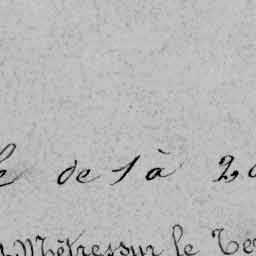 de 1 à 2
Mètres sur le